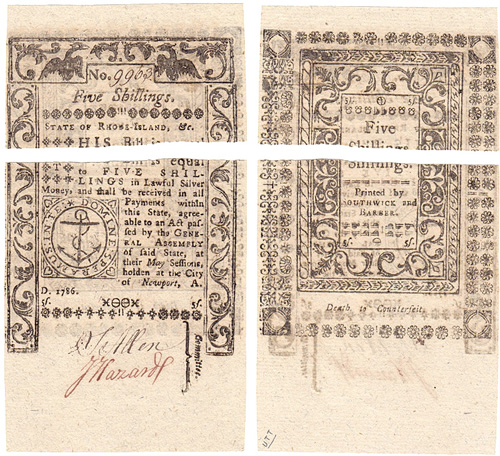 No. 9962
Five Shillings.
STATE OF RHODE-ISLAND, &c.
HIS Bill is
equal
to FIVE SHIL-
LINGS in Lawful Silver
Money, and shall be received in all
Payments within
this State, agree-
able to an Act pas-
sed by the GENE-
RAL ASSEMBLY
of said State, at
their May Sessions,
holden at the City
of Newport, A.
D. 1786.
5s. XOOX 5s.
Committee.
J Hazard
5s. 5s.
Five
Shillings.
Printed by
SOUTHWICK and
BARBER.
5s. 5s.
Death to Counterfeit.